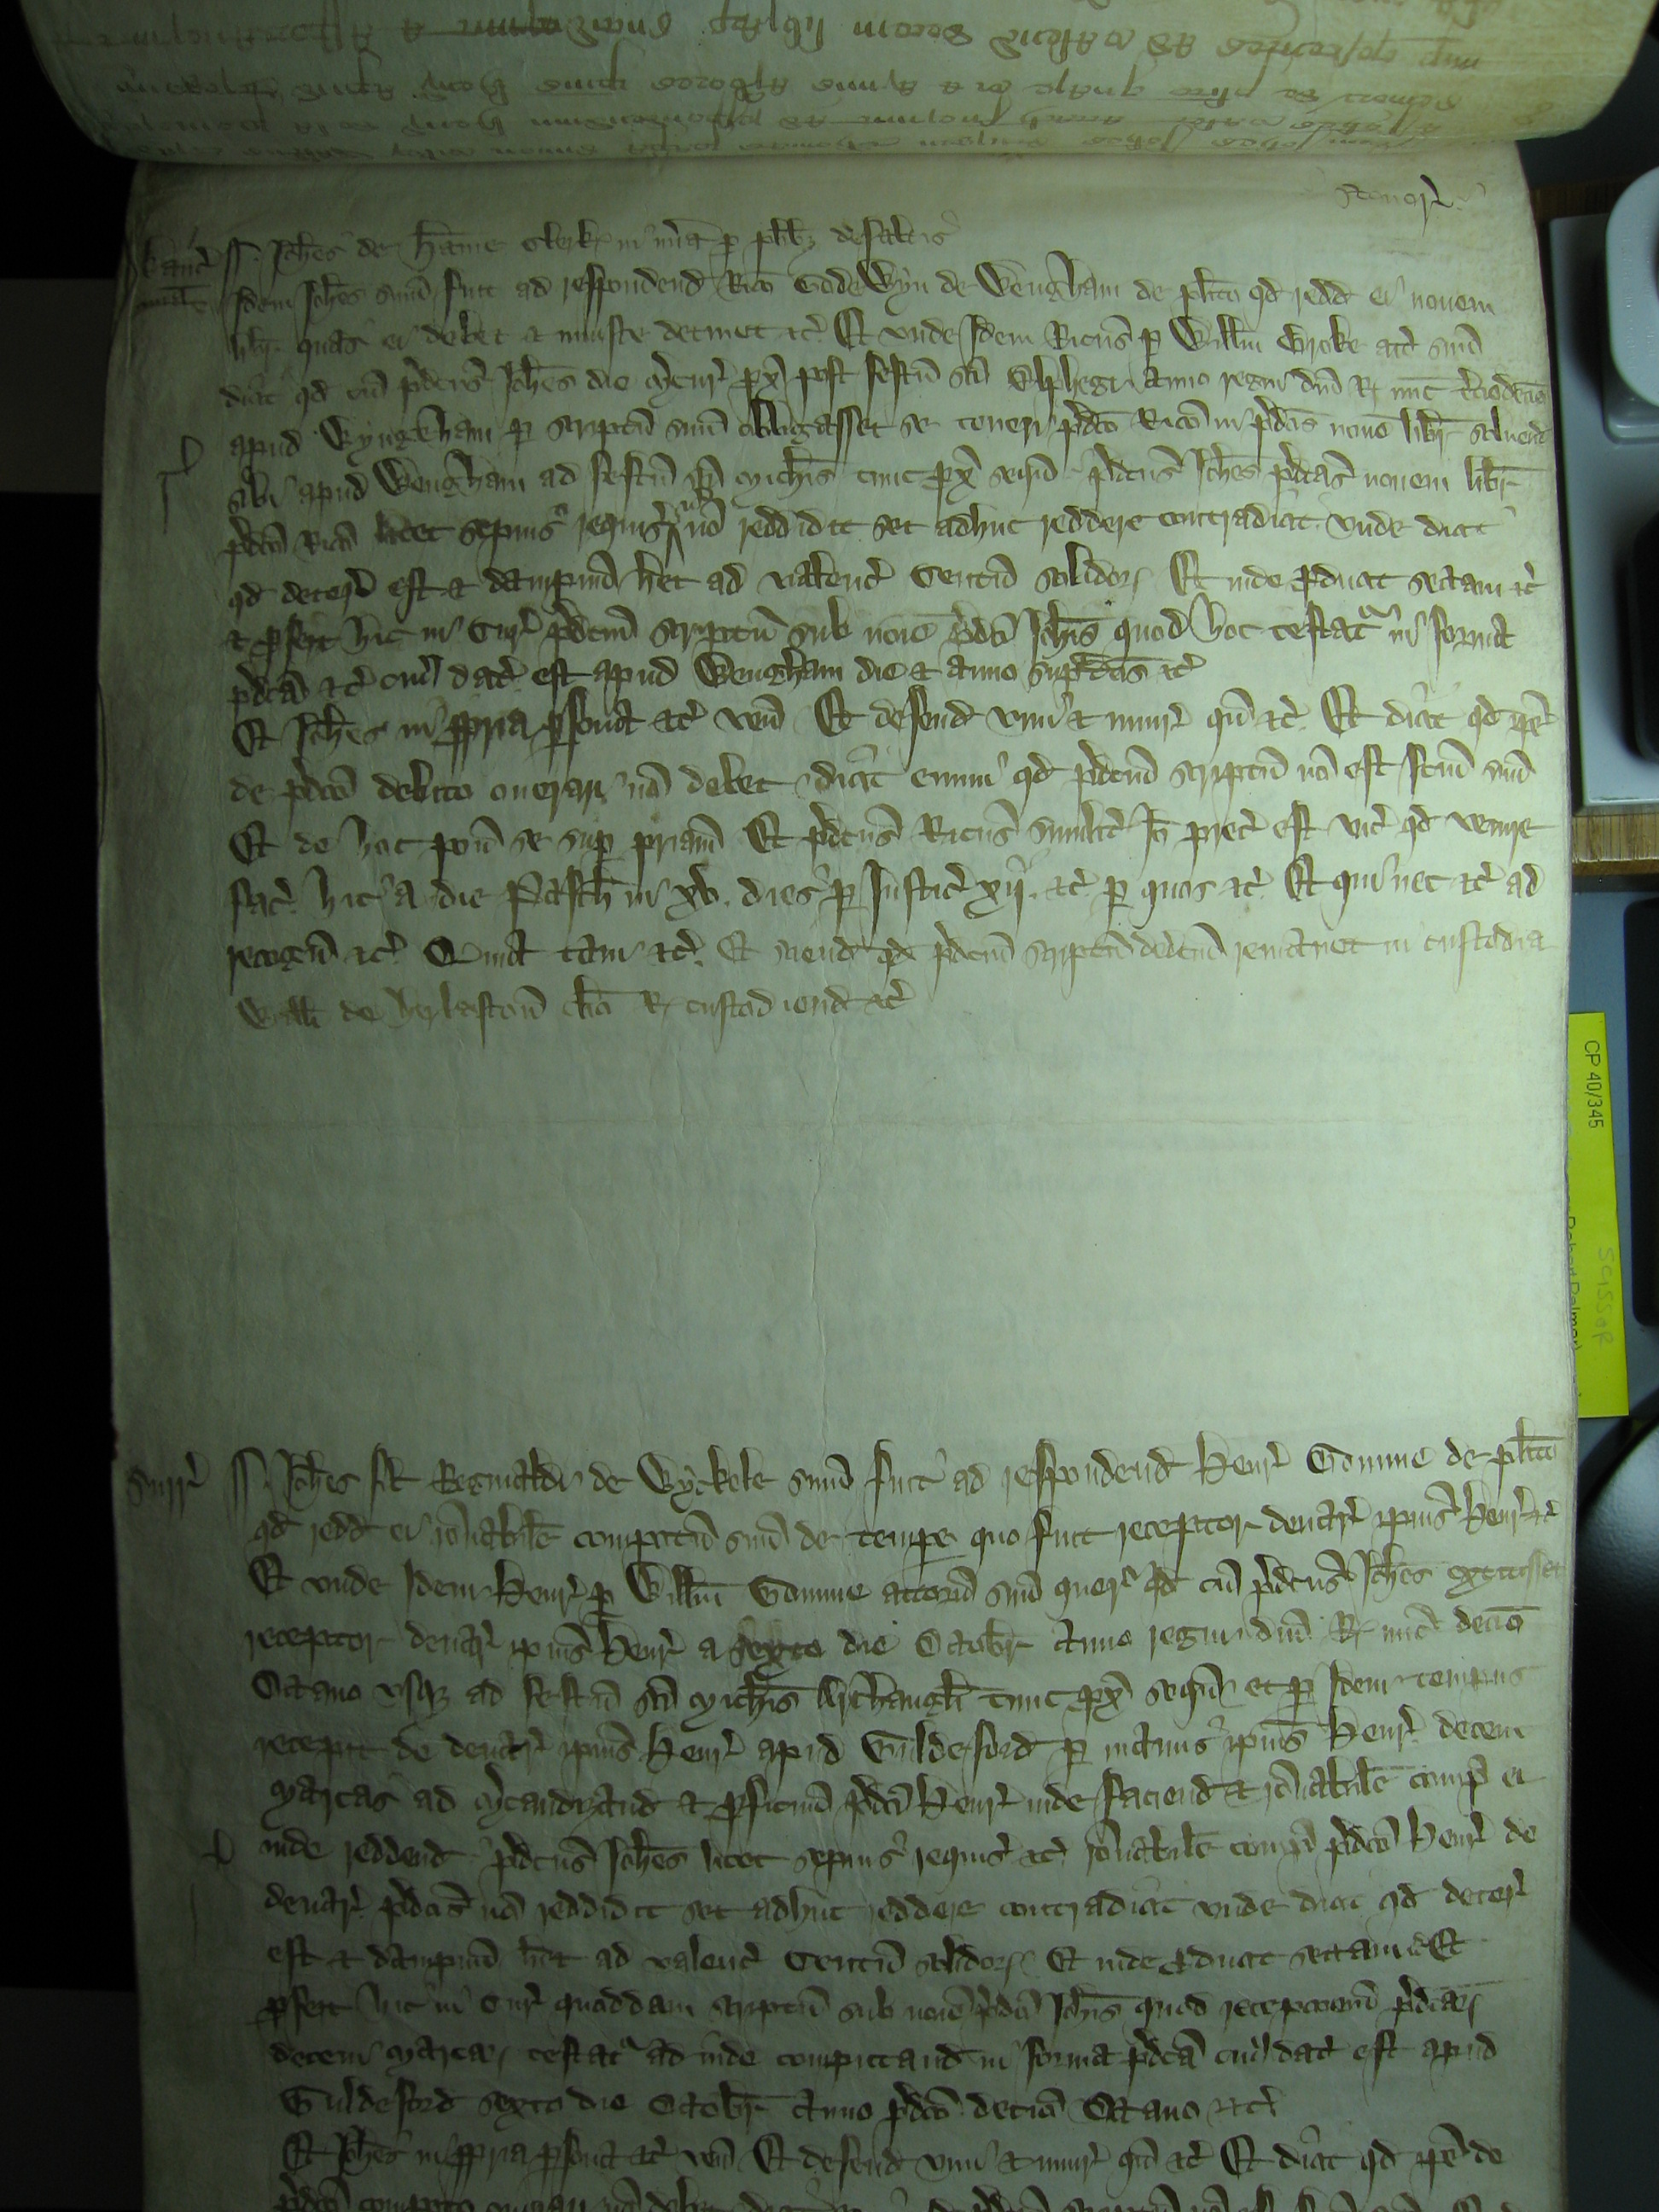 Stonor̃
Kanc̃ Joh̃es de hame Clerk in mĩa p plib3 defaltis
Idem Joh̃es sum̃ fuit ad respondend Ric̃o Godewyn de Wengham de plĩto qd redd ei nouem
libr̃ quas ei debet & iniuste detinet &c̃ Et vnde idem Ric̃us p Will̃m Broke attˀ suũ
dic̃ qd cũ p̃dcũs Joh̃es die m̃cur̃ px̃ post festũ sc̃i Elphegi anno regni dñi R nuñc
apud Wyngeham p scriptũ suũ obligasset se teneri p̃dc̃o Ric̃o in p̃dc̃is noue libr̃ soluend
sibi apud Wengham ad festũ sc̃i Mich̃is tunc px̃ sequẽ p̃dcũs Joh̃es p̃dc̃as nouem libr̃
p̃dc̃o Ric̃o licet sepius requis̃ nõ reddidit set adhuc reddere contradic̃ vnde dicit
qd det̃ior̃ est & dampnũ h̃et ad valenc̃ Centũ solidor̃ Et inde p̃ducit sectam &c̃
& p̃fert hic in Cur̃ p̃dcm̃ scriptũ sub noĩe p̃dc̃i Joh̃is quod hoc testatˀ in forma
p̃dc̃a &c̃ cuiˀ dat̃ est apud Wengham die & anno sup̃dc̃is &c̃
Et Joh̃es in pp̃ria p̃sona &c̃ veñ Et defend vim & iniur̃ qñ &c̃ Et dic̃ qd ip̃e
de p̃dc̃o debito onerari nõ debet dic̃ enim qd p̃dcũ scriptũ nõ est fcũm suũ
Et de hoc poñ se sup p̃riam Et p̃dcũs Ric̃us similit̃ Jõ prec̃ est vic̃ qd venire
fac̃ hic a die Pasch in xv. dies p Justic̃ xij. &c̃ p quos &c̃ Et qui nec &c̃ ad
recogñ &c̃ Quia tam &c̃ Et sciend qd p̃dcũm scriptũ dedcũm remanet in custodia
Will̃i de herlastoñ cl̃ici R custodiend &c̃
Surr̃ Joh̃es fil Reginaldi de Wyckele sum̃ fuit ad respondend Henr̃ Gomme de pl̃ito
qd redd ei rõnabilẽ compotũ suũ de tempe quo fuit receptor denar̃ ip̃ius Henr̃ &c̃
Et vnde idem Henr̃ p Will̃m Gomme attorñ suũ querˀ qd cũ p̃dcũs Joh̃es extitisset
receptor denar̃ ip̃ius Henr̃ a sexto die Octobr̃ anno regni dñi R nuñc decĩo
Octauo vsq3 ad festũ sc̃i Mich̃is Archangli tunc px̃ sequẽ et p idem tempus
recepit de denar̃ ip̃ius Henr̃ apud Guldeford p manus ip̃ius Henr̃ decem
marcas ad m̃candizand & p̃ficuũ p̃dc̃i Henr̃ inde faciend & rõnabilẽ comp̃ ei
inde reddend p̃dcũs Joh̃es licet sepius requis̃ &c̃ rõnabilẽ comp̃ p̃dc̃o Henr̃ de
denar̃ p̃dc̃is nõ reddidit set adhuc reddere contradic̃ vnde dicit qd det̃ior̃
est & dampnũ h̃et ad valenc̃ Centũ solidor̃ Et inde p̃ducit sectam &c̃ Et
p̃fert hic in Cur̃ quoddam scriptũ sub noĩe p̃dc̃i Joh̃is quod recepcoẽm p̃dcar̃
decem marcar̃ testatˀ ad inde computand in forma p̃dc̃a cuiˀ dat̃ est apud
Guldeford sexto die Octobr̃ anno p̃dc̃o decĩo Octauo &c̃
Et Joh̃es in pp̃ria p̃sona &c̃ veñ Et defend vim & iniur̃ qñ &c̃ Et dic̃ qd ip̃e de
CP 40/345
SCISSOR